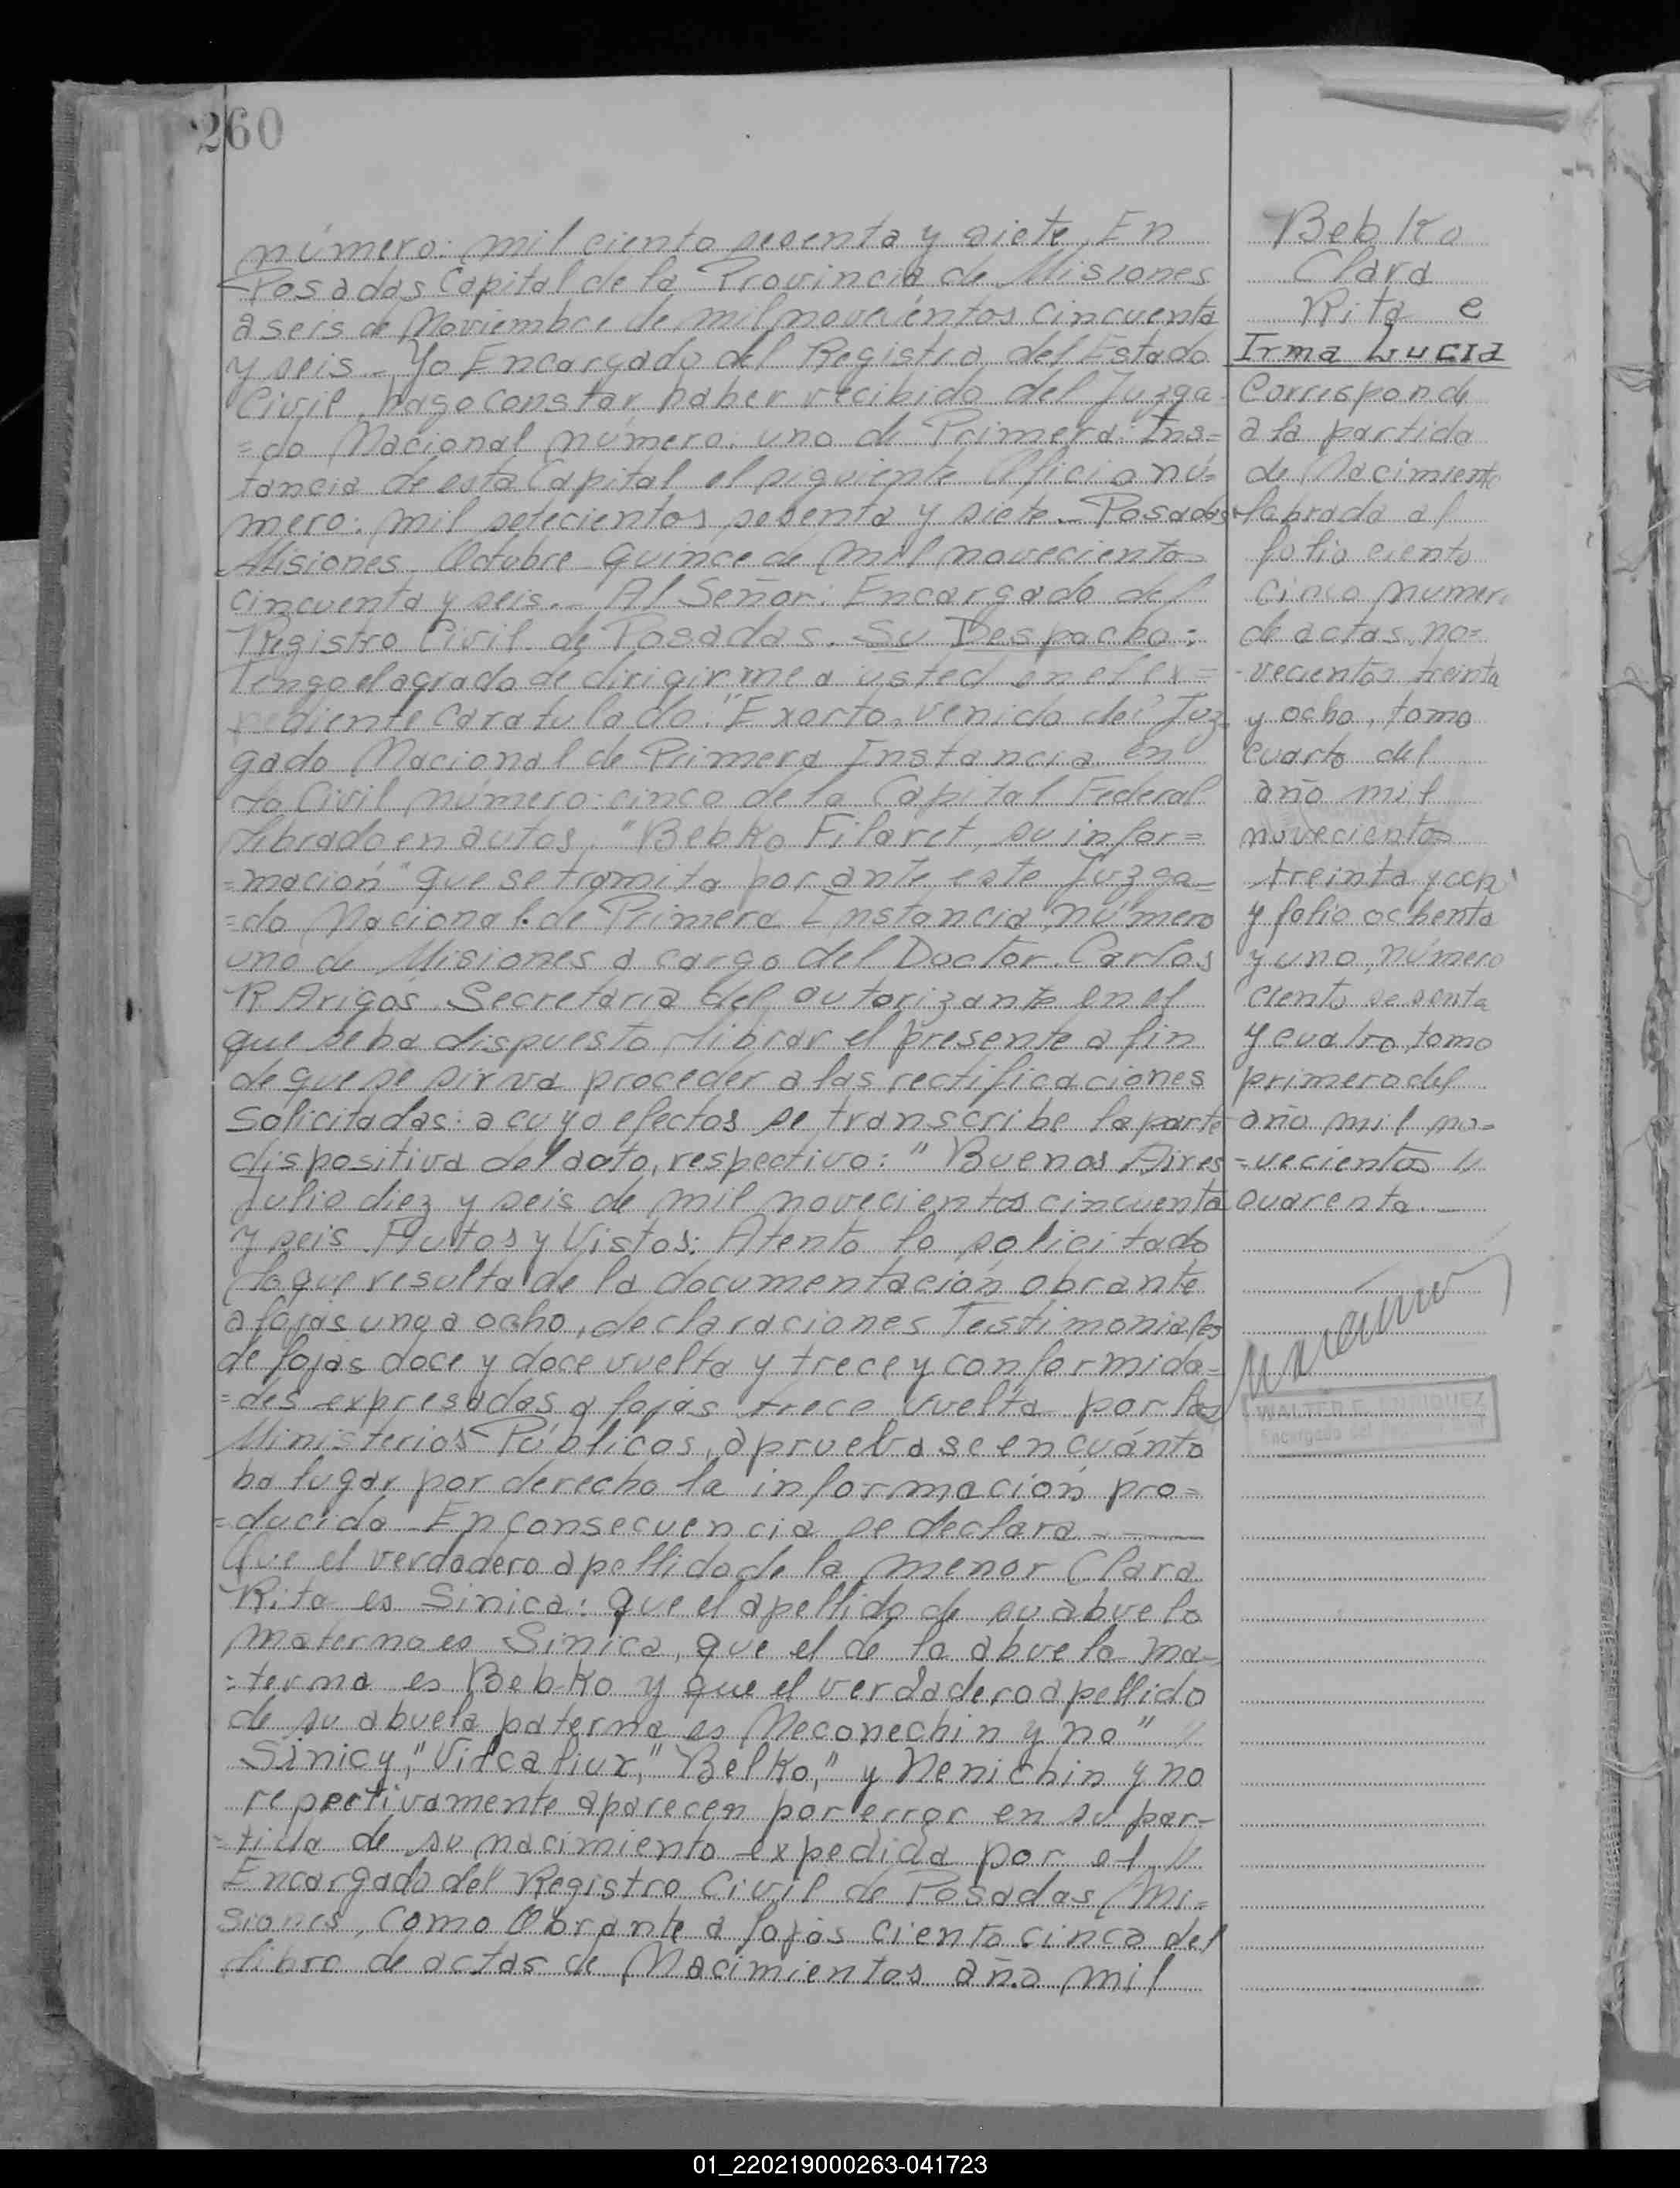 260
número: mil ciento sesenta y siete. En
Posadas Capital de la Provincia de Misiones
a seis de Noviembre de mil novecientos cincuenta
y seis.- Yo Encargado del Registro del Estado
Civil, hago constar haber recibido del Juzga-
=do Nacional número: uno de Primera Ins=
tancia de esta Capital el siguiente Oficio nú=
mero: mil setecientos sesenta y siete.- Posadas
Misiones, Octubre quince de mil novecientos
cincuenta y seis.- Al Señor: Encargado del
Registro Civil de Posadas. Su Despacho:
Tengo el agrado de dirigirme a usted en el ex=
pediente caratulado: "Exorto, venido del Juz=
gado Nacional de Primera Instancia en
lo Civil número: cinco de la Capital Federal
librado en autos, "Bebko Filaret, su infor=
=macion" que se tramita por ante este Juzga=
=do Nacional de Primera Instancia número
uno de Misiones a cargo del Doctor Carlos
R Arigós. Secretaria del autorizante en el
que se ha dispuesto librar el presente a fin
de que se sirva proceder a las rectificaciones
Solicitadas: a cuyo efectos se transcribe la parte
dispositiva del aoto, respectivo: "Buenos Aires
Julio diez y seis de mil novecientos cincuenta
y seis. Autos y Vistos: Atento lo solicitado
lo que resulta de la documentación obrante
a fojas uno a ocho, declaraciones Testimoniales
de fojas doce y doce vuelta y trece y conformida=
=des expresadas a fojas trece vuelta por los
Ministerios Públicos, apruebase en cuánto
ha lugar por derecho la información pro=
=ducida. En consecuencia se declara.-
Que el verdadero apellido de la menor Clara
Rita es Sinica: que el apellido de su abuelo
materno es Sinica, que el de la abuela ma-
=terna es Bebko y que el verdadero apellido
de su abuela paterna es Meconechin y no"
Sinicy," "Belko," y Nenichin y no
repectivamente aparecen por error en su par-
=tida de su nacimiento expedida por el
Encargado del Registro Civil de Posadas, Mi=
siones, como Obrante a fojas ciento cinco del
libro de actas de Nacimientos año mil
Bebko
Clara
Rita e
Irma Lucia
Corresponde
a la partida
de Nacimiento
labrada al
folio ciento
cinco numero
de actas no=
-vecientos treinta
y ocho, tomo
cuarto del
año mil
novecientos
treinta y
y folio ochenta
y uno, número
ciento sesenta
y cuatro, tomo
primero del
año mil no=
=vecientos
cuarenta.-
WALTER E. ENRIQUEZ
Encargado del Registro Civil
01_220219000263-041723